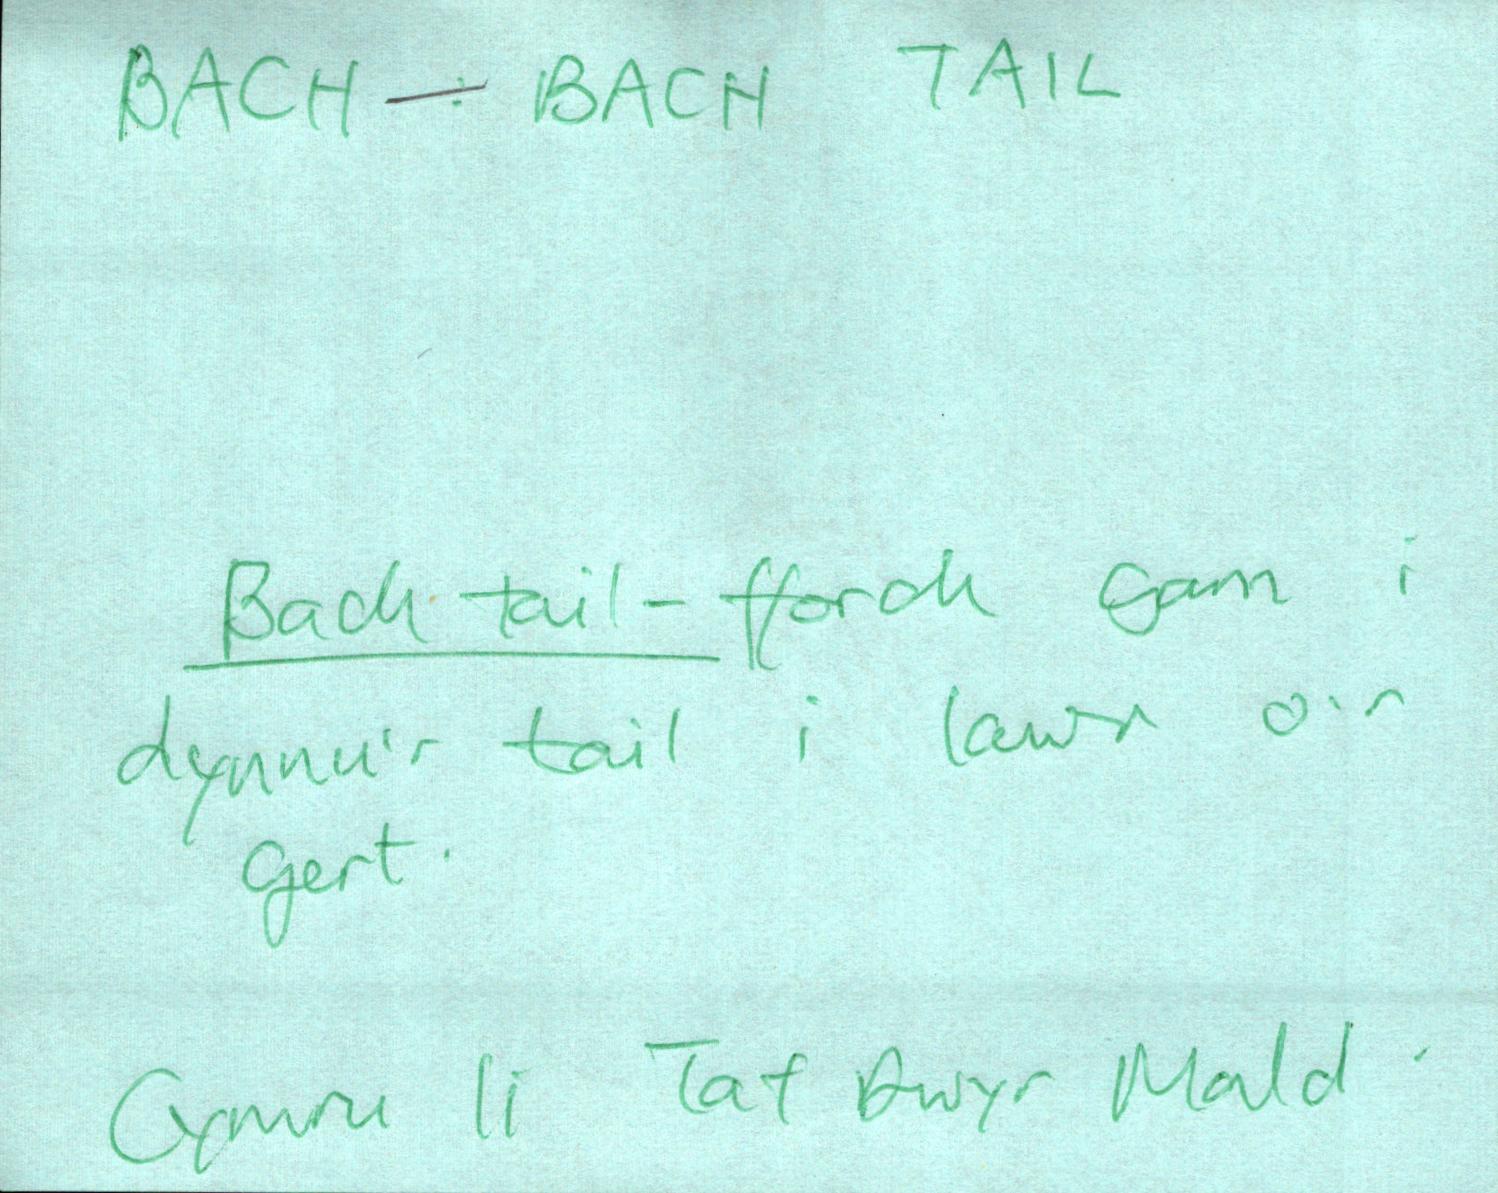 BACH — BACH TAIL
Bach tail - fforch gam i
dynnu'r tail i lawr o'r
gert.
Cymru li Taf Dwyr Mald.